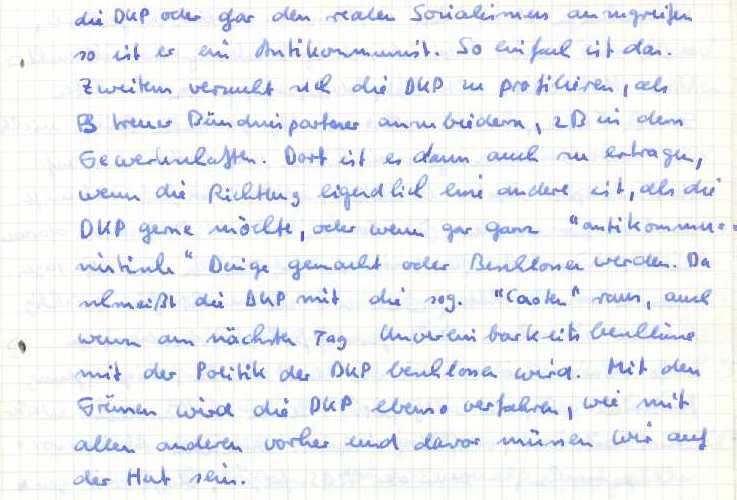 die DKP oder gar den realen Sozialismus anzugreifen
so ist er ein Antikommunist. So einfach ist das.
Zweitens versucht sich die DKP zu profilieren, als
treuer Bündnispartner anzubiedern, zB in den
Gewerkschaften. Dort ist es dann auch zu ertragen,
wenn die Richtung eigendlich eine andere ist, als die
DKP gerne möchte, oder wenn gar ganz "antikommu-
nistische" Dinge gemacht oder Beschlossen werden. Da
schmeißt die DKP mit die sog. "Caoten" raus, auch
wenn am nächsten Tag Unvereinbarkeitsbeschlüsse
mit der Politik der DKP beschlossen wird. Mit den
Grünen wird die DKP ebenso verfahren, wie mit
allen anderen vorher und davor müssen wir auf
der Hut sein.